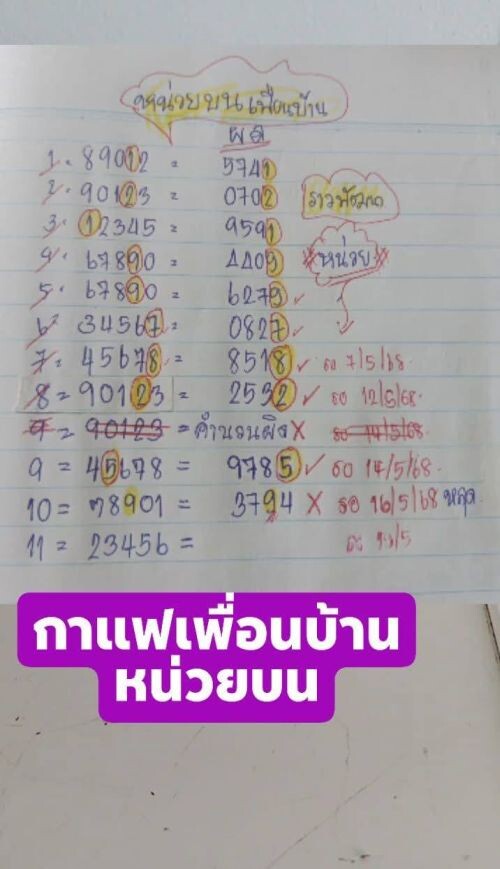 หน่วยบน เพื่อนบ้าน
ผล
1. 89012 = 5741
2. 90123 = 0702
3. 12345 = 9591
4. 67890 = 4409
5. 67890 = 6279 ✓
หน่วย
6. 34567 = 0827 ✓
7. 45678 = 8518 ✓ รอ 7/5/68
8 = 90123 = 2532 ✓ รอ 12/5/68
9 = 90123 = คำนวนผิด X รอ 14/5/68
9 = 45678 = 9785 ✓ รอ 14/5/68
10 = 78901 = 3794 X รอ 16/5/68 หลุด
11 = 23456 =
กาแฟเพื่อนบ้าน
หน่วยบน